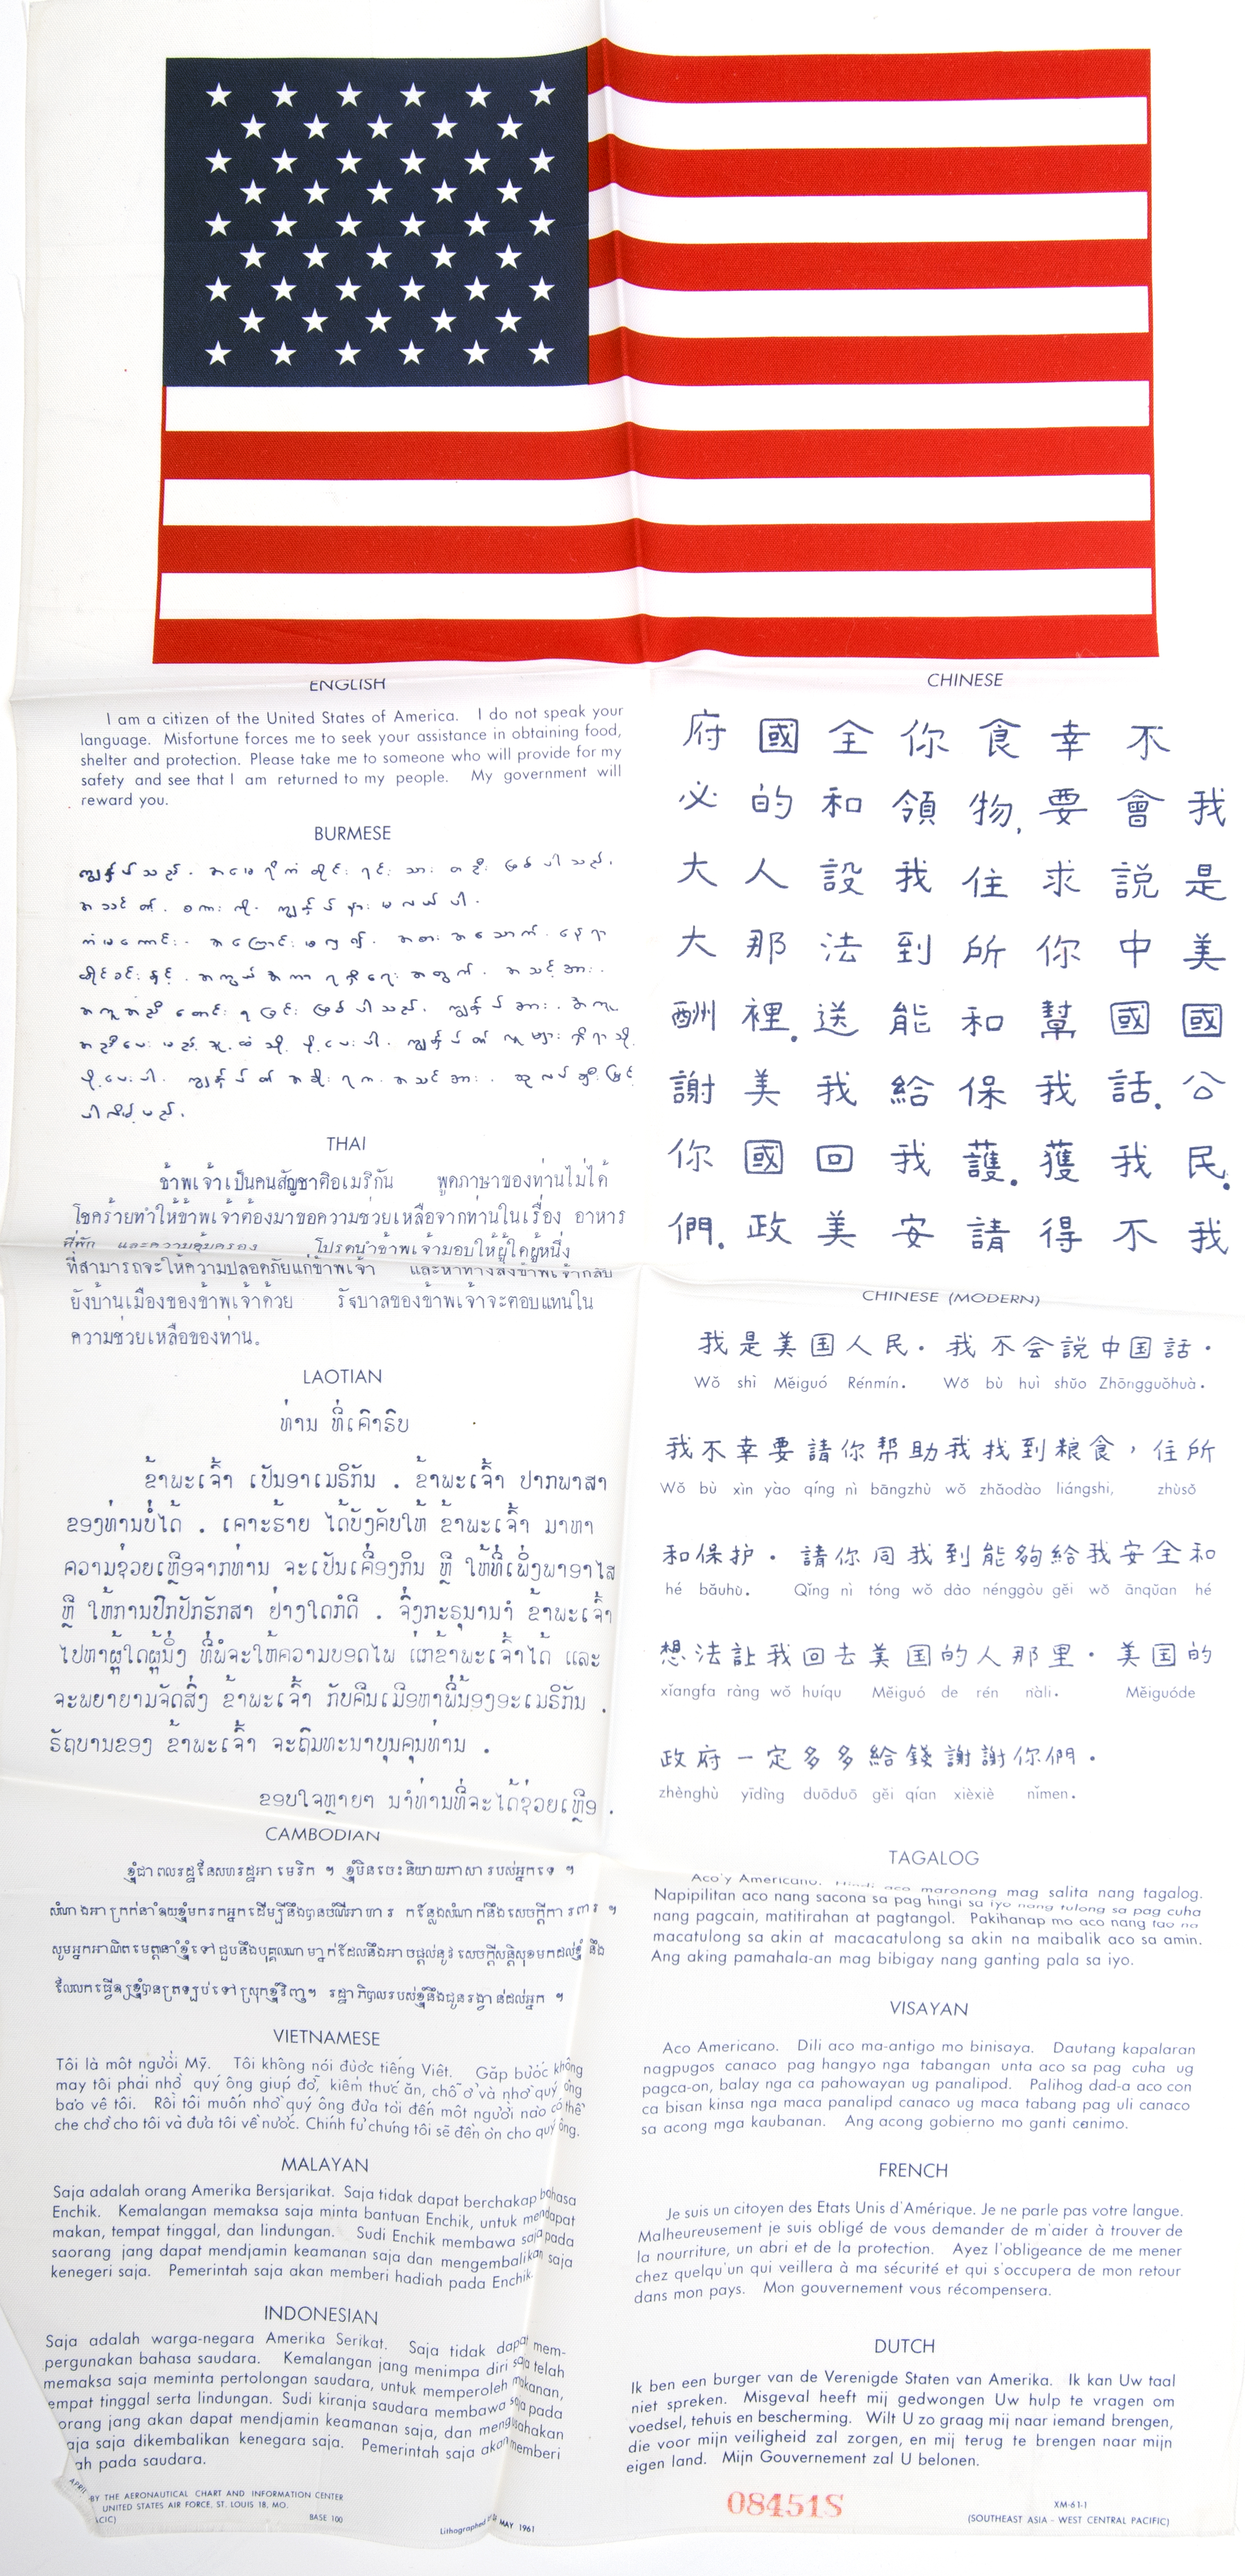 ENGLISH
I am a citizen of the United States of America. I do not speak your
language. Misfortune forces me to seek your assistance in obtaining food,
shelter and protection. Please take me to someone who will provide for my
safety and see that I am returned to my people. My government will
reward you.
BURMESE
ကျွန်ုပ်သည်. အမေရိကံတိုင်းရင်းသားတဦးဖြစ်ပါသည်.
အသင်၏. စကားကို. ကျွန်ုပ် မလယ်ပါ.
ကံမကောင်း. အကြောင်းမလှ၍. အစားအသောက်. နေရာ
ထိုင်ခင်းနှင့်. အကွယ်အကာရရှိရေးအတွက်. အသင့်အား.
အကူအညီတောင်းရခြင်းဖြစ်ပါသည်. ကျွန်ုပ်အား. အကူ
အညီပေးမည့်သူထံသို့ ပို့ပေးပါ. ကျွန်ုပ်၏လူများရှိရာသို့
ပို့ပေးပါ. ကျွန်ုပ်၏အစိုးရက. အသင်အား.
ပါလိမ့်မည်.
THAI
ข้าพเจ้าเป็นคนสัญชาติอเมริกัน พูดภาษาของท่านไม่ได้
โชคร้ายทำให้ข้าพเจ้าต้องมาขอความช่วยเหลือจากท่านในเรื่อง อาหาร
ที่พัก และความคุ้มครอง โปรดนำข้าพเจ้ามอบให้ผู้ใดผู้หนึ่ง
ที่สามารถจะให้ความปลอดภัยแก่ข้าพเจ้า และหาทางส่งข้าพเจ้ากลับ
ยังบ้านเมืองของข้าพเจ้าด้วย รัฐบาลของข้าพเจ้าจะตอบแทนใน
ความช่วยเหลือของท่าน.
LAOTIAN
ທ່ານ ທີ່ເຄົາຣົບ
ຂ້າພະເຈົ້າ ເປັນອາເມຣິກັນ . ຂ້າພະເຈົ້າ ປາກພາສາ
ຂອງທ່ານບໍ່ໄດ້ . ເຄາະຮ້າຍ ໄດ້ບັງຄັບໃຫ້ ຂ້າພະເຈົ້າ ມາຫາ
ຄວາມຊ່ວຍເຫຼືອຈາກທ່ານ ຈະເປັນເຄື່ອງກິນ ຫຼື ໃຫ້ທີ່ເພິ່ງພາອາໄສ
ຫຼື ໃຫ້ການປົກປັກຮັກສາ ຢ່າງໃດກໍດີ . ຈຶ່ງກະຣຸນານຳ ຂ້າພະເຈົ້າ
ໄປຫາຜູ້ໃດຜູ້ນຶ່ງ ທີ່ພໍຈະໃຫ້ຄວາມປອດໄພ ແກ່ຂ້າພະເຈົ້າໄດ້ ແລະ
ຈະພຍາຍາມຈັດສົ່ງ ຂ້າພະເຈົ້າ ກັບຄືນເມືອຫາພີ່ນ້ອງອະເມຣິກັນ .
ຣັຖບານຂອງ ຂ້າພະເຈົ້າ ຈະຖິມທະນາບຸນຄຸນທ່ານ .
ຂອບໃຈຫຼາຍໆ ນຳທ່ານທີ່ຈະໄດ້ຊ່ວຍເຫຼືອ .
CAMBODIAN
ខ្ញុំជាពលរដ្ឋនៃសហរដ្ឋអាមេរិក ។ ខ្ញុំមិនចេះនិយាយភាសារបស់អ្នកទេ ។
សំណាងអាក្រក់នាំឲ្យខ្ញុំមករកអ្នកដើម្បីនឹងបានចំណីអាហារ កន្លែងសំណាក់នឹងសេចក្ដីការពារ ។
សូមអ្នកអាណិតមេត្តានាំខ្ញុំទៅជួបនឹងបុគ្គលណាម្នាក់ដែលនឹងអាចផ្ដល់នូវសេចក្ដីសន្តិសុខមកដល់ខ្ញុំ នឹង
ដែលគេធ្វើឲ្យខ្ញុំបានត្រឡប់ទៅស្រុកខ្ញុំវិញ។ រដ្ឋាភិបាលរបស់ខ្ញុំនឹងជូនរង្វាន់ដល់អ្នក ។
VIETNAMESE
Tôi là một người Mỹ. Tôi không nói được tiếng Việt. Gặp bước không
may tôi phải nhờ quý ông giúp đỡ, kiếm thức ăn, chỗ ở và nhờ quý ông
bảo vệ tôi. Rồi tôi muốn nhờ quý ông đưa tôi đến một người nào có thể
che chở cho tôi và đưa tôi về nước. Chính fủ chúng tôi sẽ đền ơn cho quý ông.
MALAYAN
Saja adalah orang Amerika Bersjarikat. Saja tidak dapat berchakap bahasa
Enchik. Kemalangan memaksa saja minta bantuan Enchik, untuk mendapat
makan, tempat tinggal, dan lindungan. Sudi Enchik membawa saja pada
saorang jang dapat mendjamin keamanan saja dan mengembalikan saja
kenegeri saja. Pemerintah saja akan memberi hadiah pada Enchik.
INDONESIAN
Saja adalah warga-negara Amerika Serikat. Saja tidak dapat mem-
pergunakan bahasa saudara. Kemalangan jang menimpa diri saja telah
memaksa saja meminta pertolongan saudara, untuk memperoleh makanan,
empat tinggal serta lindungan. Sudi kiranja saudara membawa saja pada
orang jang akan dapat mendjamin keamanan saja, dan mengusahakan
aja saja dikembalikan kenegara saja. Pemerintah saja akan memberi
ah pada saudara.
APRIL
BY THE AERONAUTICAL CHART AND INFORMATION CENTER
UNITED STATES AIR FORCE, ST. LOUIS 18, MO.
ACIC) BASE 100
Lithographed MAY 1961
CHINESE
我是美國公民.我
不會説中國話.我不
幸要求你幫我獲得
食物,住所和保護.請
你領我到能給我安
全和設法送我回美
國的人那裡.美國政
府必大大酬謝你們.
CHINESE (MODERN)
我是美国人民. 我不会説中国話.
Wǒ shì Měiguó Rénmín. Wǒ bù huì shūo Zhōngguǒhuà.
我不幸要請你帮助我找到粮食, 住所
Wǒ bù xìn yào qíng nì bāngzhù wǒ zhǎodào liángshi, zhùsǒ
和保护. 請你同我到能夠給我安全和
hé bǎuhù. Qǐng nì tóng wǒ dào nénggòu gěi wǒ ānqǔan hé
想法讓我回去美国的人那里. 美国的
xǐangfa ràng wǒ huíqu Měiguó de rén nàli. Měiguóde
政府一定多多給錢謝謝你們.
zhènghù yīdìng duōduō gěi qían xièxiè nǐmen.
TAGALOG
Aco'y Americano. Hindi aco maronong mag salita nang tagalog.
Napipilitan aco nang sacona sa pag hingi sa iyo nang tulong sa pag cuha
nang pagcain, matitirahan at pagtangol. Pakihanap mo aco nang tao na
macatulong sa akin at macacatulong sa akin na maibalik aco sa amin.
Ang aking pamahala-an mag bibigay nang ganting pala sa iyo.
VISAYAN
Aco Americano. Dili aco ma-antigo mo binisaya. Dautang kapalaran
nagpugos canaco pag hangyo nga tabangan unta aco sa pag cuha ug
pagca-on, balay nga ca pahowayan ug panalipod. Palihog dad-a aco con
ca bisan kinsa nga maca panalipd canaco ug maca tabang pag uli canaco
sa acong mga kaubanan. Ang acong gobierno mo ganti canimo.
FRENCH
Je suis un citoyen des Etats Unis d'Amérique. Je ne parle pas votre langue.
Malheureusement je suis obligé de vous demander de m'aider à trouver de
la nourriture, un abri et de la protection. Ayez l'obligeance de me mener
chez quelqu'un qui veillera à ma sécurité et qui s'occupera de mon retour
dans mon pays. Mon gouvernement vous récompensera.
DUTCH
Ik ben een burger van de Verenigde Staten van Amerika. Ik kan Uw taal
niet spreken. Misgeval heeft mij gedwongen Uw hulp te vragen om
voedsel, tehuis en bescherming. Wilt U zo graag mij naar iemand brengen,
die voor mijn veiligheid zal zorgen, en mij terug te brengen naar mijn
eigen land. Mijn Gouvernement zal U belonen.
08451S
XM-61-1
(SOUTHEAST ASIA - WEST CENTRAL PACIFIC)